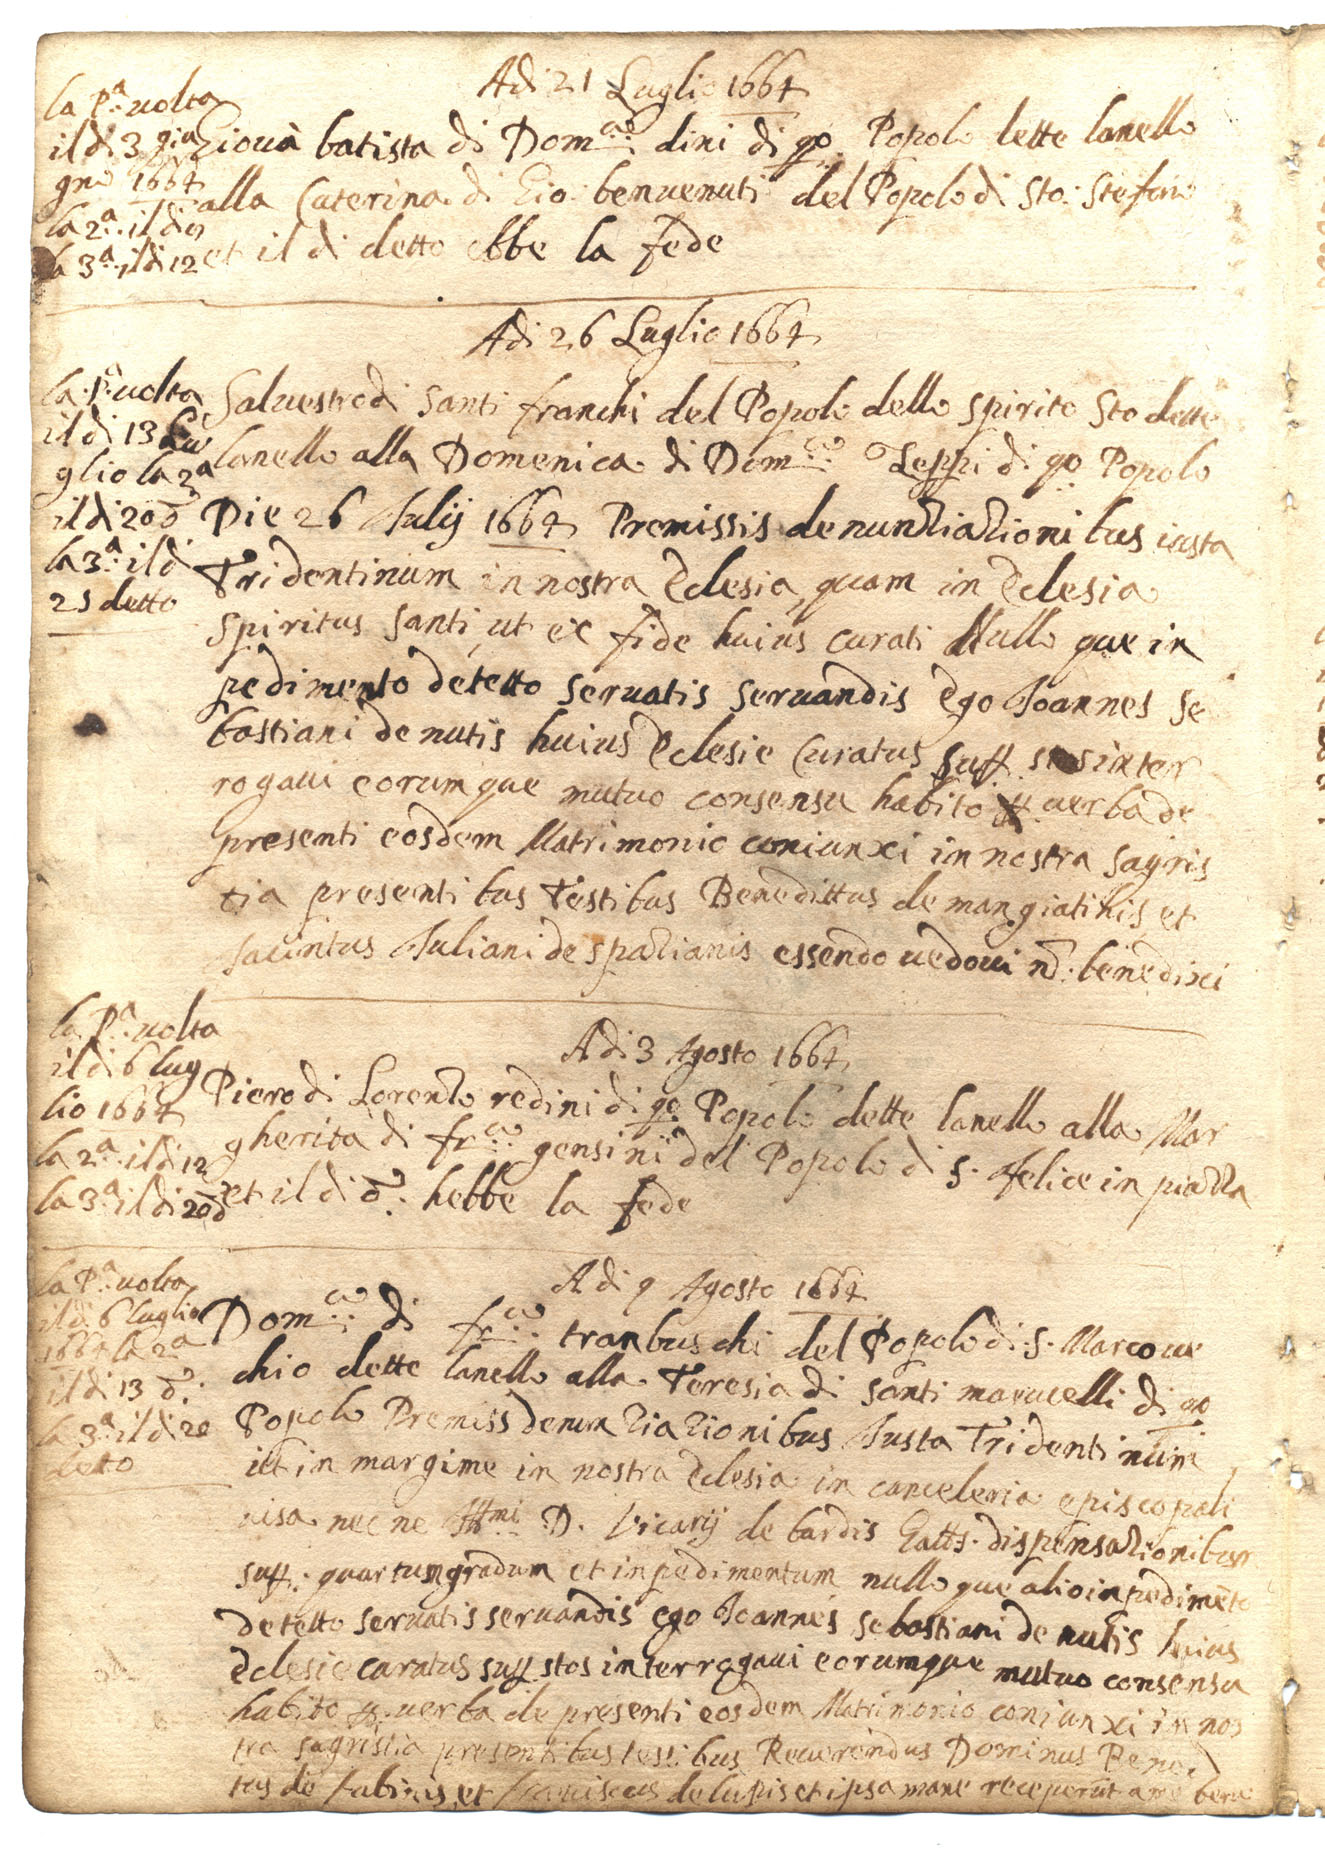 Adi 21 Luglio 1664
la P.a uolta
il di 3 giu
gno 1664
la 2.a il di 9
la 3.a il di 12
Giouã batista di Dom.co dini di qo Popolo dette lanello
alla Caterina di Gio: benuenuti del Popolo di Sto: Stefano
et il di detto ebbe la fede
Adi 26 Luglio 1664
la P.a uolta
il di 13 Lu
glio la 2a
il di 20 d
la 3.a il di
25 detto
Saluestro di Santi franchi del Popolo dello spirito Sto dette
lanello alla Domenica di Dom.co Zeppi di qo Popolo
Die 26 Julij 1664 Premissis denuntiationibus iusta
Tridentinum in nostra Eclesia, quam in Eclesia
Spiritus Santi, ut ex fide huius curati Nullo que in
pedimento detetto seruatis seruandis Ego Joannes se
bastiani de nutis huius Eclesie Curatus supp. stos inter
rogaui eorumque mutuo consensu habito p. uerba de
presenti eosdem Matrimonio coniunxi in nostra sagris
tia presentibus Testibus Benedittus de mangiatinis et
Jacintus Juliani de spatianis essendo uedoui nõ. benedixi
la P.a uolta
il di 6 lug
lio 1664
la 2.a il di 12
la 3.a il di 20 d
Adi 3 Agosto 1664
Piero di Lorenzo redini di qo Popolo dette lanello alla Mar
gherita di fr.co gensini del Popolo di S. felice in piazza
et il di d.o hebbe la fede
la P.a uolta
il di 6 luglio
1664 la 2a
il di 13 d.
la 3.a il di 20
detto
Adi 9 Agosto 1664
Dom.co di fr.co tranbuschi del Popolo di S. Marco ue
chio dette lanello alla Teresia di santi marucelli di qo
Popolo Premiss denuntiationibus Justa Tridentinũm
ut in margine in nostra Eclesia in canceleria episcopali
uisa necne Ill.mi D. Vicarij de bardis dispensationibus
supp. quartum gradum et inpedimentum nullo que alio inpedimẽto
detetto seruatis seruandis ego Joannes sebastiani de nutis huius
Eclesie curatus supp. stos interrogaui eorumque mutuo consensu
habito p. uerba de presenti eosdem Matrimonio coniunxi in nos
tra sagristia presentibus testibus Reuerendus Dominus Bened
tus de fabinis et franciscus de lupis et ipsa mane receperũt a me bene